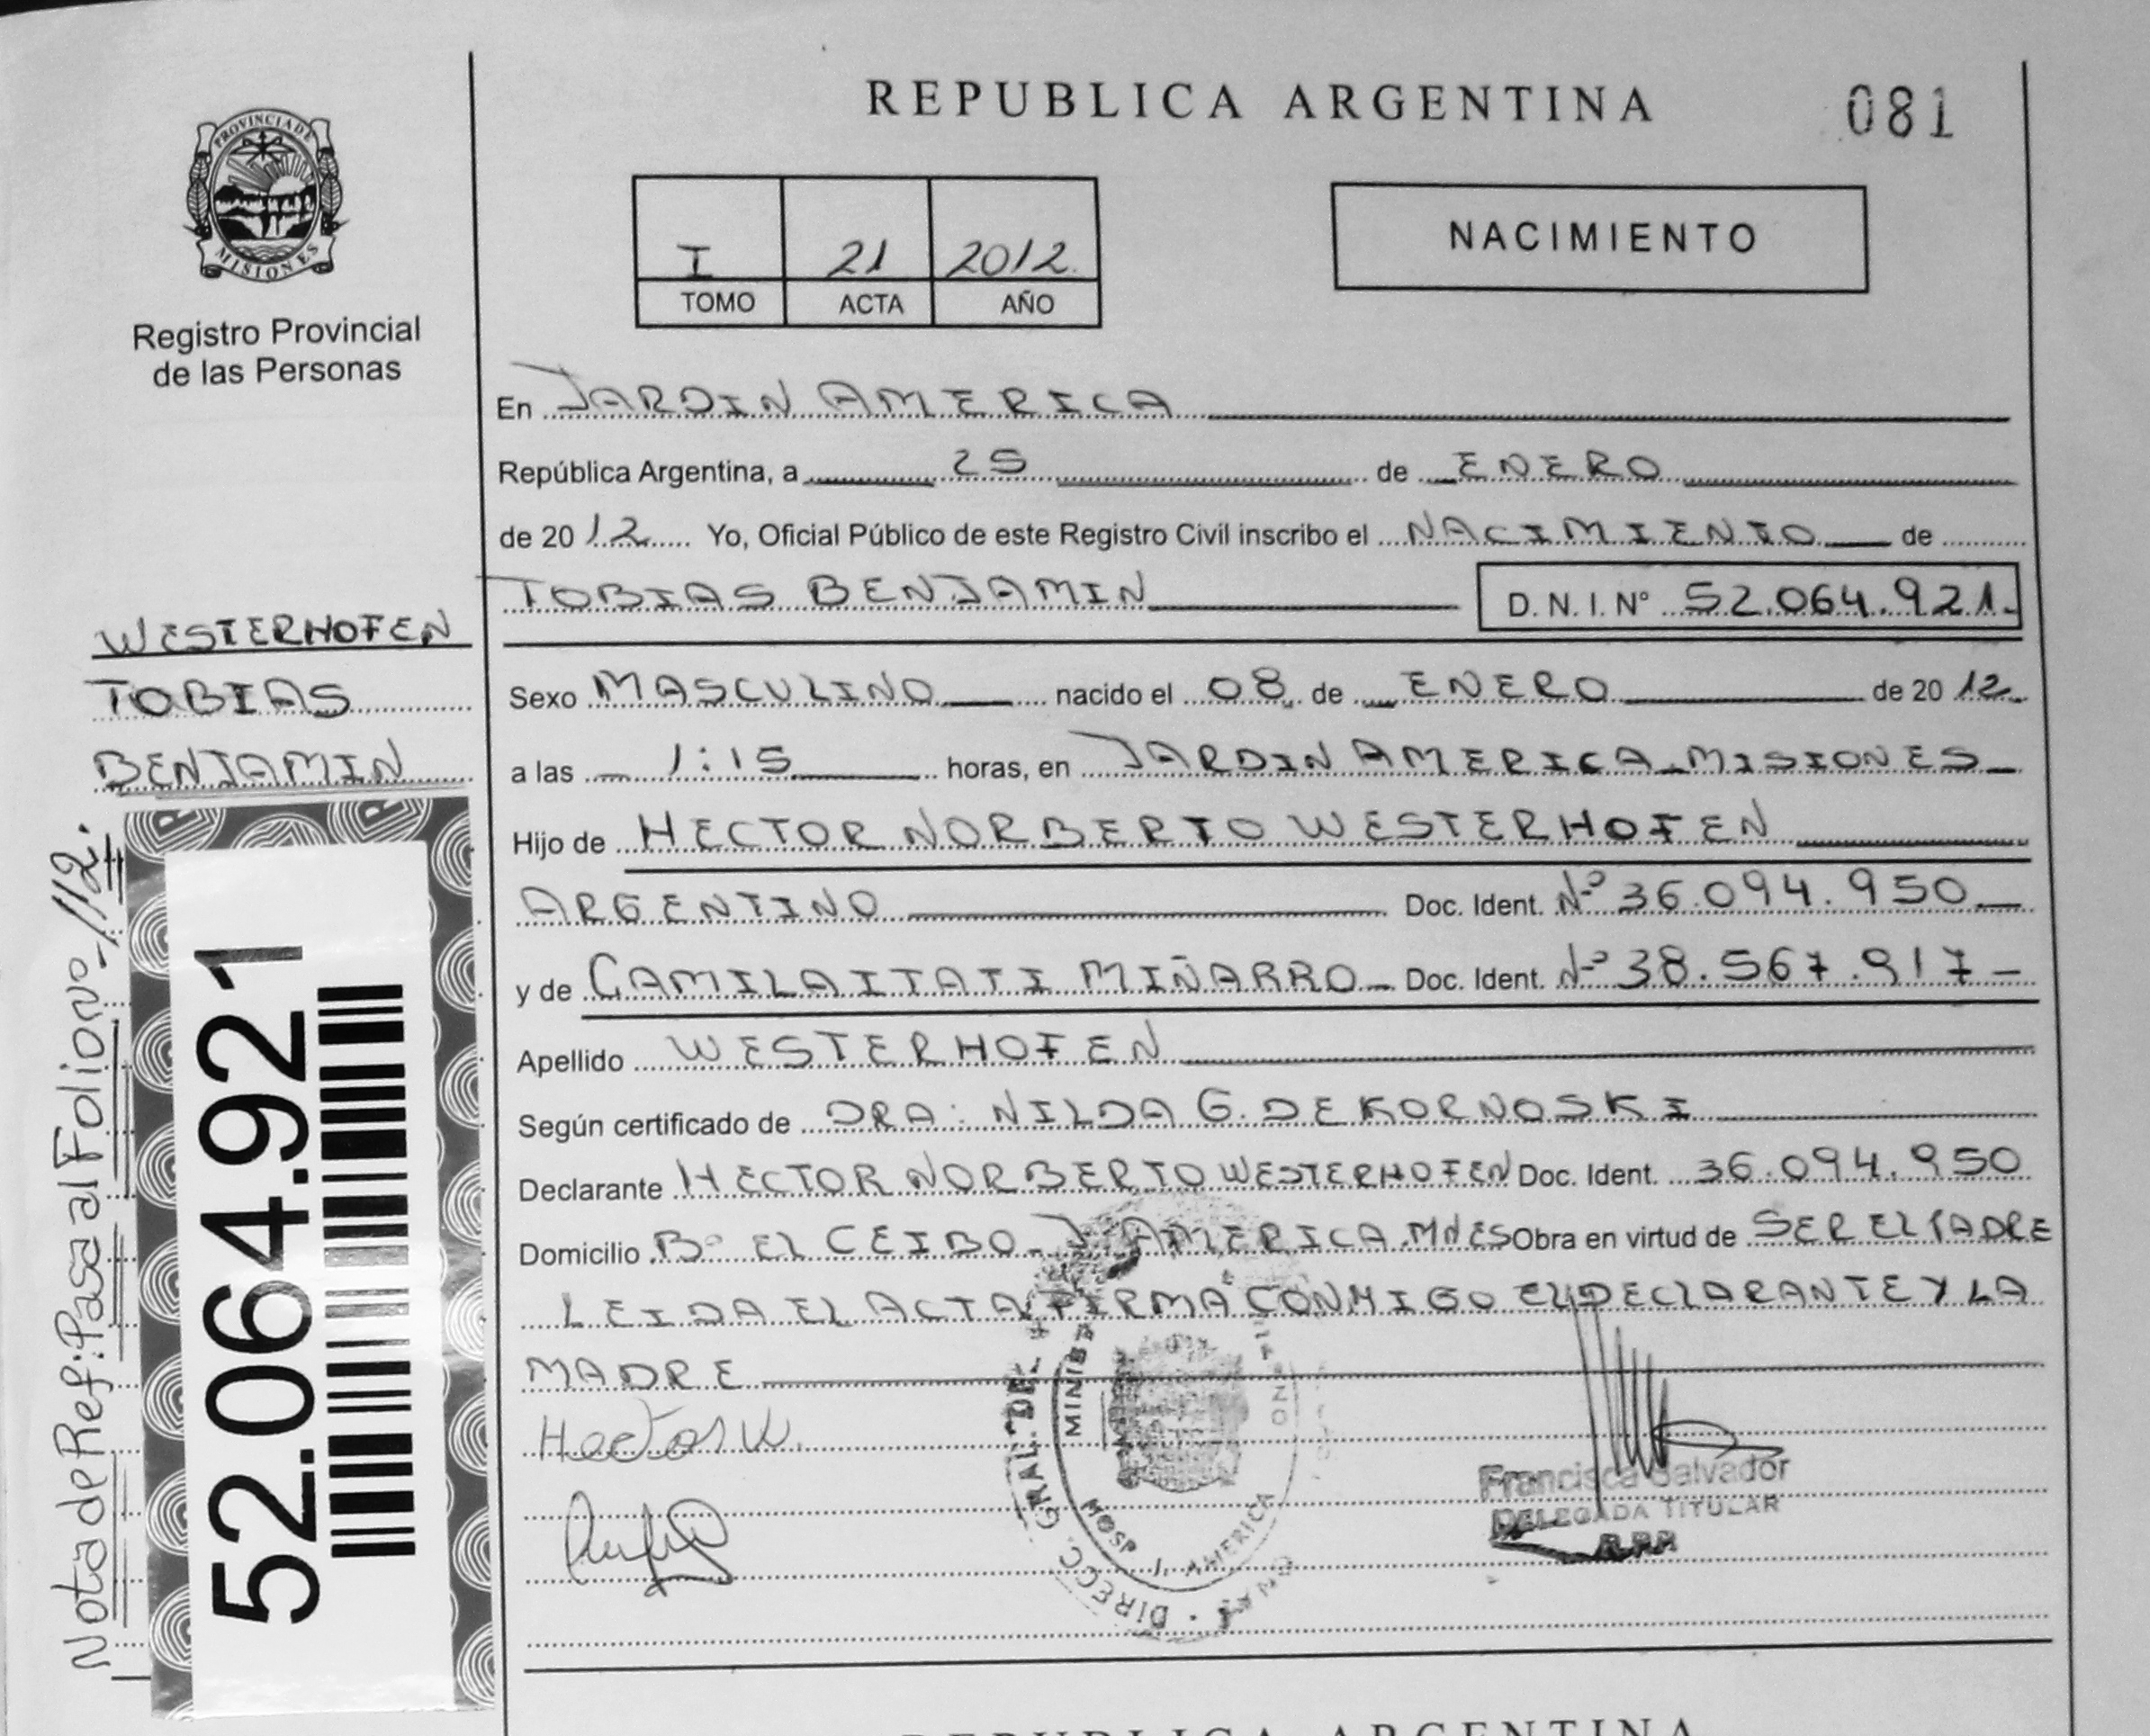 REPUBLICA ARGENTINA
081
PROVINCIA DE
MISIONES
Registro Provincial
de las Personas
I 21 2012
TOMO ACTA AÑO
NACIMIENTO
En JARDIN AMERICA
República Argentina, a 25 de ENERO
de 2012 Yo, Oficial Público de este Registro Civil inscribo el NACIMIENTO de
TOBIAS BENJAMIN D. N. I. N° 52.064.921.
WESTERHOFEN
TOBIAS
BENJAMIN
Sexo MASCULINO nacido el 08 de ENERO de 2012
a las 1:15 horas, en JARDIN AMERICA - MISIONES
Hijo de HECTOR NORBERTO WESTERHOFEN
ARGENTINO Doc. Ident. Nº 36.094.950
y de CAMILA ITATI MIÑARRO Doc. Ident. Nº 38.567.917
Apellido WESTERHOFEN
Según certificado de DRA: NILDA G. DEKORNOSKI
Declarante HECTOR NORBERTO WESTERHOFEN Doc. Ident. 36.094.950
Domicilio Bº EL CEIBO - J. AMERICA. MNES Obra en virtud de SER EL PADRE
LEIDA EL ACTA FIRMA CONMIGO EL DECLARANTE Y LA
MADRE
Hector W.
Francisca Salvador
DELEGADA TITULAR
R.P.P
DIRECC. GRAL. DE
MOSP J. AMERICA
52.064.921
Nota de Ref: Pasa al Folio Nº 112.
REPUBLICA ARGENTINA